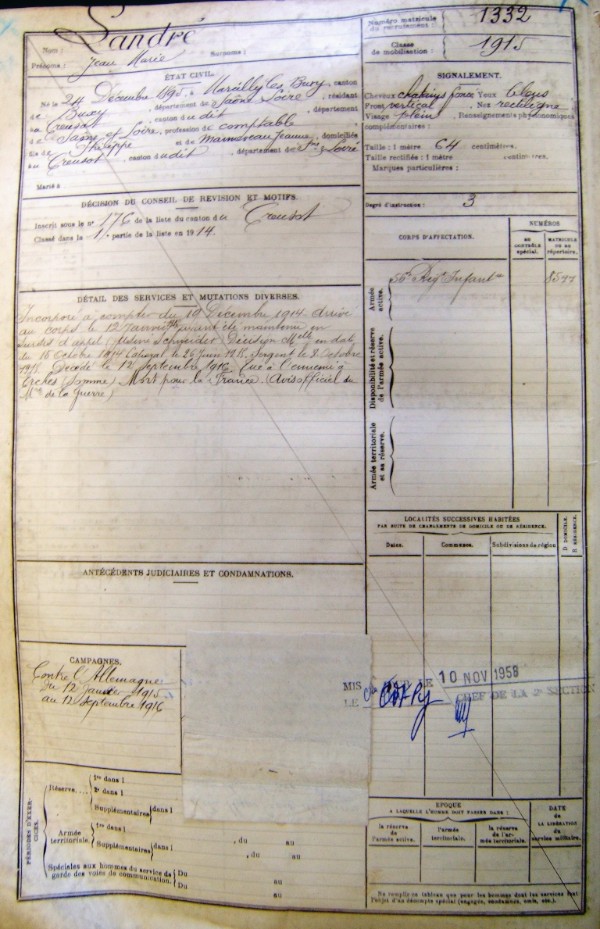 Landré
Nom :
Prénoms : Jean Marie Surnoms :
Numéro matricule du recrutement : 1332
Classe de mobilisation : 1915
ÉTAT CIVIL.
Né le 24 Décembre 1895, à Marcilly les Buxy, canton
de Buxy, département de Saône Loire, résidant
au Creusot, canton du dit, département
de Saône et Loire, profession de comptable
fils de Philippe et de Jeanne, domiciliés
au Creusot, canton du dit, département de S. et Loire
Marié à
SIGNALEMENT.
Cheveux chatains foncé Yeux bleus
Front vertical Nez rectiligne
Visage plein Renseignements physionomiques
complémentaires :
Taille : 1 mètre 64 centimètres.
Taille rectifiée : 1 mètre centimètres.
Marques particulières :
Degré d'instruction : 3
DÉCISION DU CONSEIL DE RÉVISION ET MOTIFS.
Inscrit sous le n° 176 de la liste du canton du Creusot
Classé dans la 1re partie de la liste en 1914.
CORPS D'AFFECTATION.
NUMÉROS
AU CONTRÔLE spécial.
MATRICULE OU AU répertoire.
Armée active.
56e Régt Infantie
8577
Disponibilité et réserve de l'armée active.
Armée territoriale et sa réserve.
DÉTAIL DES SERVICES ET MUTATIONS DIVERSES.
Incorporé à compter du 19 Décembre 1914 arrivé
au corps le 12 Janvier
sursis d'appel (Usine Schneider) Décision Mlle en date
du 16 Octobre 1914 Caporal le 26 Juin 1915, Sergent le 8 Octobre
1915 Décédé le 12 Septembre 1916 Tué à l'ennemi à
(Somme) Mort pour la France. (Avis officiel du
Mre de la guerre)
LOCALITÉS SUCCESSIVES HABITÉES
PAR SUITE DE CHANGEMENTS DE DOMICILE OU DE RÉSIDENCE.
Dates.
Communes.
Subdivisions de région
D DOMICILE.
R RÉSIDENCE.
ANTÉCÉDENTS JUDICIAIRES ET CONDAMNATIONS.
CAMPAGNES.
Contre l'Allemagne
du 12 Janvier 1915
au 12 Septembre 1916
MIS
LE
LE 10 NOV 1958
CHEF DE LA 2e SECTION
PÉRIODES D'EXERCICES.
Réserve....
1re dans l
2e dans l
Supplémentaires dans l
Armée territoriale.
1re dans l
Supplémentaires dans l
, du au
, du au
Spéciales aux hommes du service de garde des voies de communication.
Du au
Du au
EPOQUE
A LAQUELLE L'HOMME DOIT PASSER DANS :
la réserve de l'armée active.
l'armée territoriale.
la réserve de l'armée territoriale.
DATE de LA LIBÉRATION du service militaire.
Ne remplir ce tableau que pour les hommes dont les services font
l'objet d'un décompte spécial (engagés, condamnés, omis, etc.)